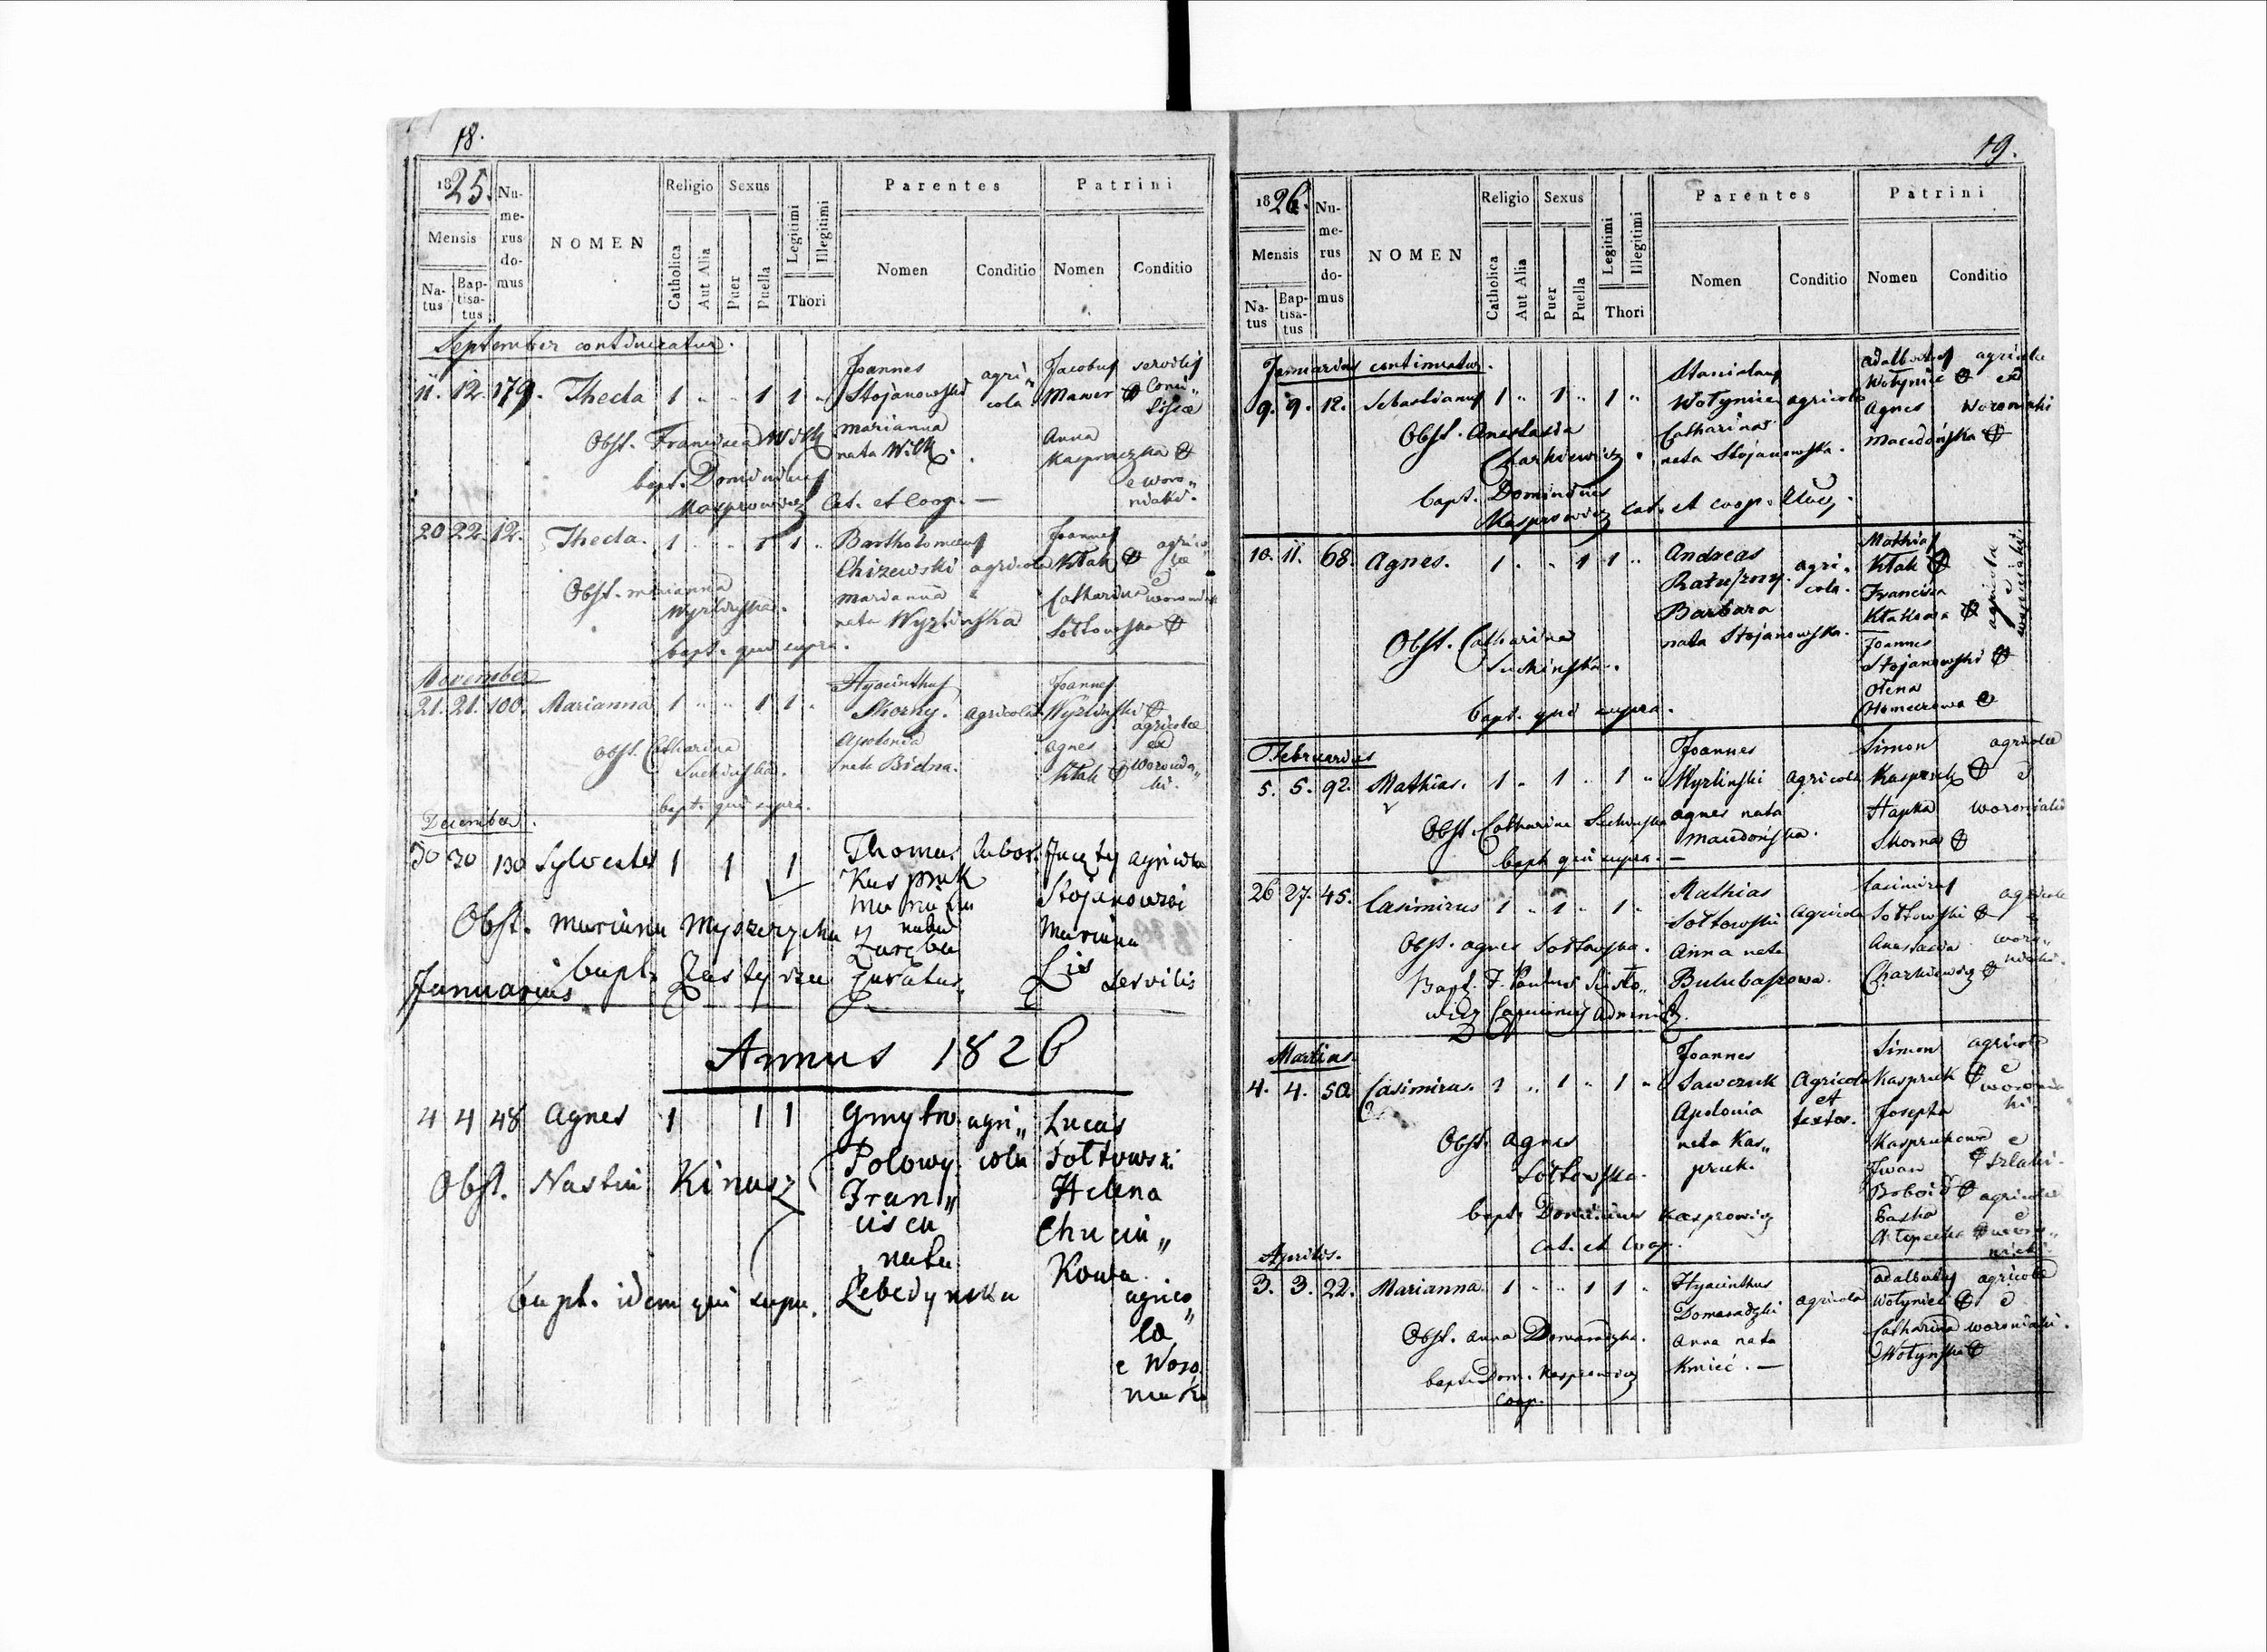 18.
1825.
Mensis
Na-
tus
Bap-
tisa-
tus
Nu-
me-
rus
do-
mus
NOMEN
Religio
Catholica
Aut Alia
Sexus
Puer
Puella
Legitimi
Illegitimi
Thori
Parentes
Nomen
Conditio
Patrini
Nomen
Conditio
September continuatur.
11. 12. 179. Thecla 1 " " 1 1 "
Joannes
Stojanowski
agri"
cola
Marianna
nata Wilk.
Jacobus
Mawer
Anna
Kaspraczka
servilis
e Woro"
niaki.
Obst. Francisca Wilk
bapt. Dominicus
Kasprowicz Cat. et Coop. —
20 22. 12. Thecla. 1 " " 1 1 "
Bartholomeus
Chizewski agricola
Marianna
nata Wyzlinska
Joannes
Kłak
Catharina
Sołtowska
agrico"
læ
e
Obst. Marianna
Wyzlinska.
bapt. qui supra.
November
21. 21. 100. Marianna 1 " " 1 1 "
Hyacinthus
Skorny. agricola
Apolonia
nata Bidna.
Joannes
Wyzlinski
Agnes
Kłak
agricolæ
ex
Woronia"
ki.
Obst. Catharina
Suchinska.
bapt. qui supra.
December.
30 30 130 Sylvester 1 1 1
Thomas
Kaspruk
Marianna
nata
Zaręba
labor.
Stojanowski
Mariana
Lis
agricola
servilis
Obst. Mariana Myszczycha
bapt. Zastyrzec Curatus.
Januarius
Annus 1826
4 4 48 Agnes 1 1 1
Gmytro
Polowy
Fran"
cisca
nata
Lebedynska
agri"
cola
Lucas
Sołtowski
Helena
Chucin"
Kowa
agrico"
læ
e Woro
niaki
Obst. Nastia Kinasz
bapt. idem qui supra.
19.
1826.
Mensis
Na-
tus
Bap-
tisa-
tus
Nu-
me-
rus
do-
mus
NOMEN
Religio
Catholica
Aut Alia
Sexus
Puer
Puella
Legitimi
Illegitimi
Thori
Parentes
Nomen
Conditio
Patrini
Nomen
Conditio
Januarius continuatur.
9. 9. 12. Sebastianus 1 " 1 " 1 "
Stanislaus
Wołyniec agricola
Catharina
nata Stojanowska.
Adalbertus
Wołyniec
Agnes
Macedońska
agricolæ
ex
Woroniaki
Obst. Anastasia
Charkiewicz.
bapt. Dominicus
Kasprowicz Cat. et coop.
10. 11. 68. Agnes. 1 " " 1 1 "
Andreas
Ratuszny.
Barbara
nata Stojanowska.
agri"
cola.
Mathias
Kłak
Francisca
Kłakowa
Joannes
Stojanowski
Olena
agricolæ
e
Woroniaki
Obst. Catharina
Suchinska.
bapt. qui supra.
Februarius
5. 5. 92. Mathias. 1 " 1 " 1 "
Joannes
Wyzlinski agricola
Agnes nata
Macedońska.
Simon
Kaspruk
Hapka
Skorna
agricolæ
e
Woroniaki
Obst. Catharina Suchinska
bapt. qui supra. —
26 27. 45. Casimirus 1 " 1 " 1 "
Mathias
Sołtowski Agricola
Anna nata
Casimirus
Sołtowski
Anastasia
Charkiewicz
agricolæ
e
Woro"
niaki.
Obst. Agnes Sołtowska.
Martius.
4. 4. 50. Casimirus. 1 " 1 " 1 "
Joannes
Sawczuk
Apolonia
nata Kas"
pruk.
Agricola
et
textor.
Simon
Kaspruk
Josepha
Kasprukowa
Iwan
agricolæ
e
Obst. Agnes
Sołtowska.
bapt. Dominicus Kasprowicz
Cat. et Coop.
Aprilis.
3. 3. 22. Marianna. 1 " " 1 1 "
Hyacinthus
Domaradzki
Anna nata
Kmieć. —
agricola
Adalbertus
Wołyniec
Catharina
Wołynska
agricolæ
e
Woroniaki.
Obst. Anna Domaradzka.
bapt. Dom. Kasprowicz
Coop.